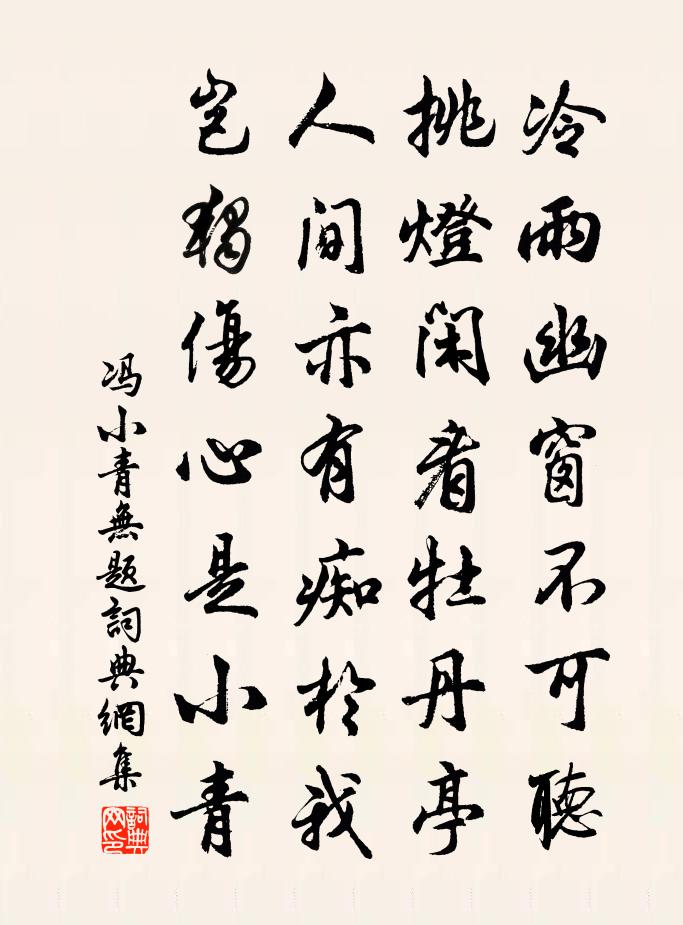 冷雨幽窗不可聽
挑燈閑看牡丹亭
人間亦有痴於我
豈獨傷心是小青
冯小青無題詞典網集
詞典
网印